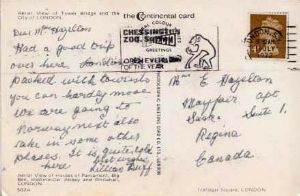 Aerial View of Tower Bridge and the
City of LONDON.
the Continental card
CHESSINGTON
ZOO,
GREETINGS
OPEN EVERY DAY
OF THE YEAR
Dear Mrs Hazelton
Had a good trip
over here. London
packed with tourists
you can hardly move
we are going to
Norway next also
take in some other
places. It is quite cold
here
Lillian
Mrs E Hazelton
Mayfair apt
Suite 1.
Regina
Canada
Aerial View of Houses of Parliament, Big
Ben, Westminster Abbey and Whitehall,
LONDON.
Trafalgar Square, LONDON